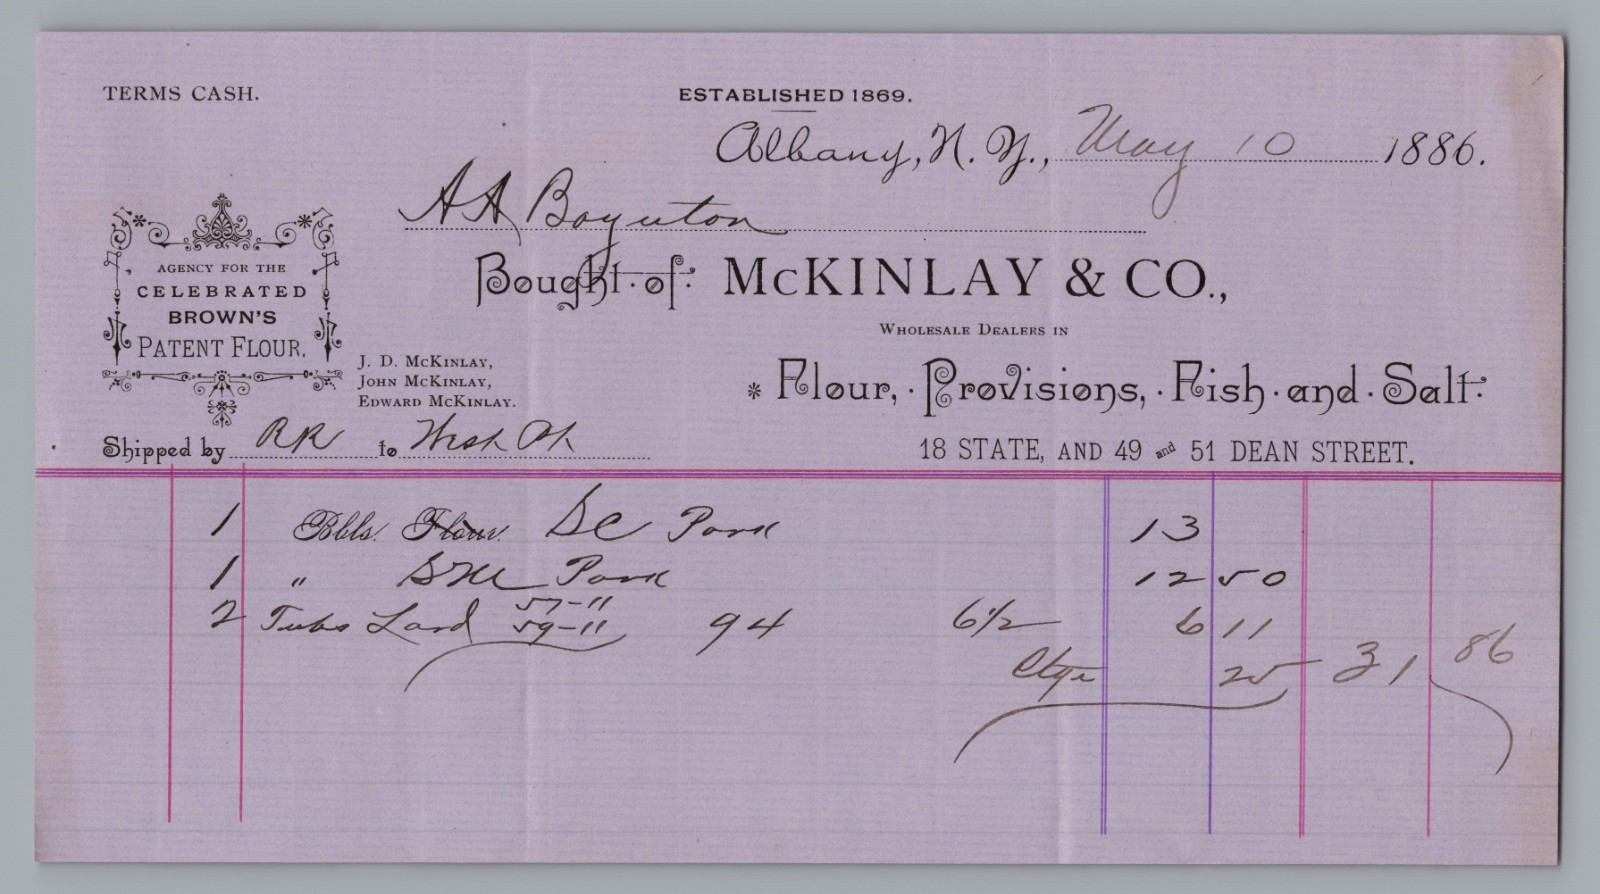 TERMS CASH.
ESTABLISHED 1869.
Albany, N. Y., May 10 1886.
A A Boynton
Bought of McKINLAY & CO.,
AGENCY FOR THE
CELEBRATED
BROWN'S
PATENT FLOUR.
WHOLESALE DEALERS IN
J. D. McKINLAY,
JOHN McKINLAY,
EDWARD McKINLAY.
* Flour, Provisions, Fish and Salt.
Shipped by RR to West Ph
18 STATE, AND 49 and 51 DEAN STREET.
1 Bbls. Flour. SC Pork 13
1 " Pork 12 50
57-11
2 Tubs Lard 59-11 94 6½ 6 11
Ctge 25 31 86